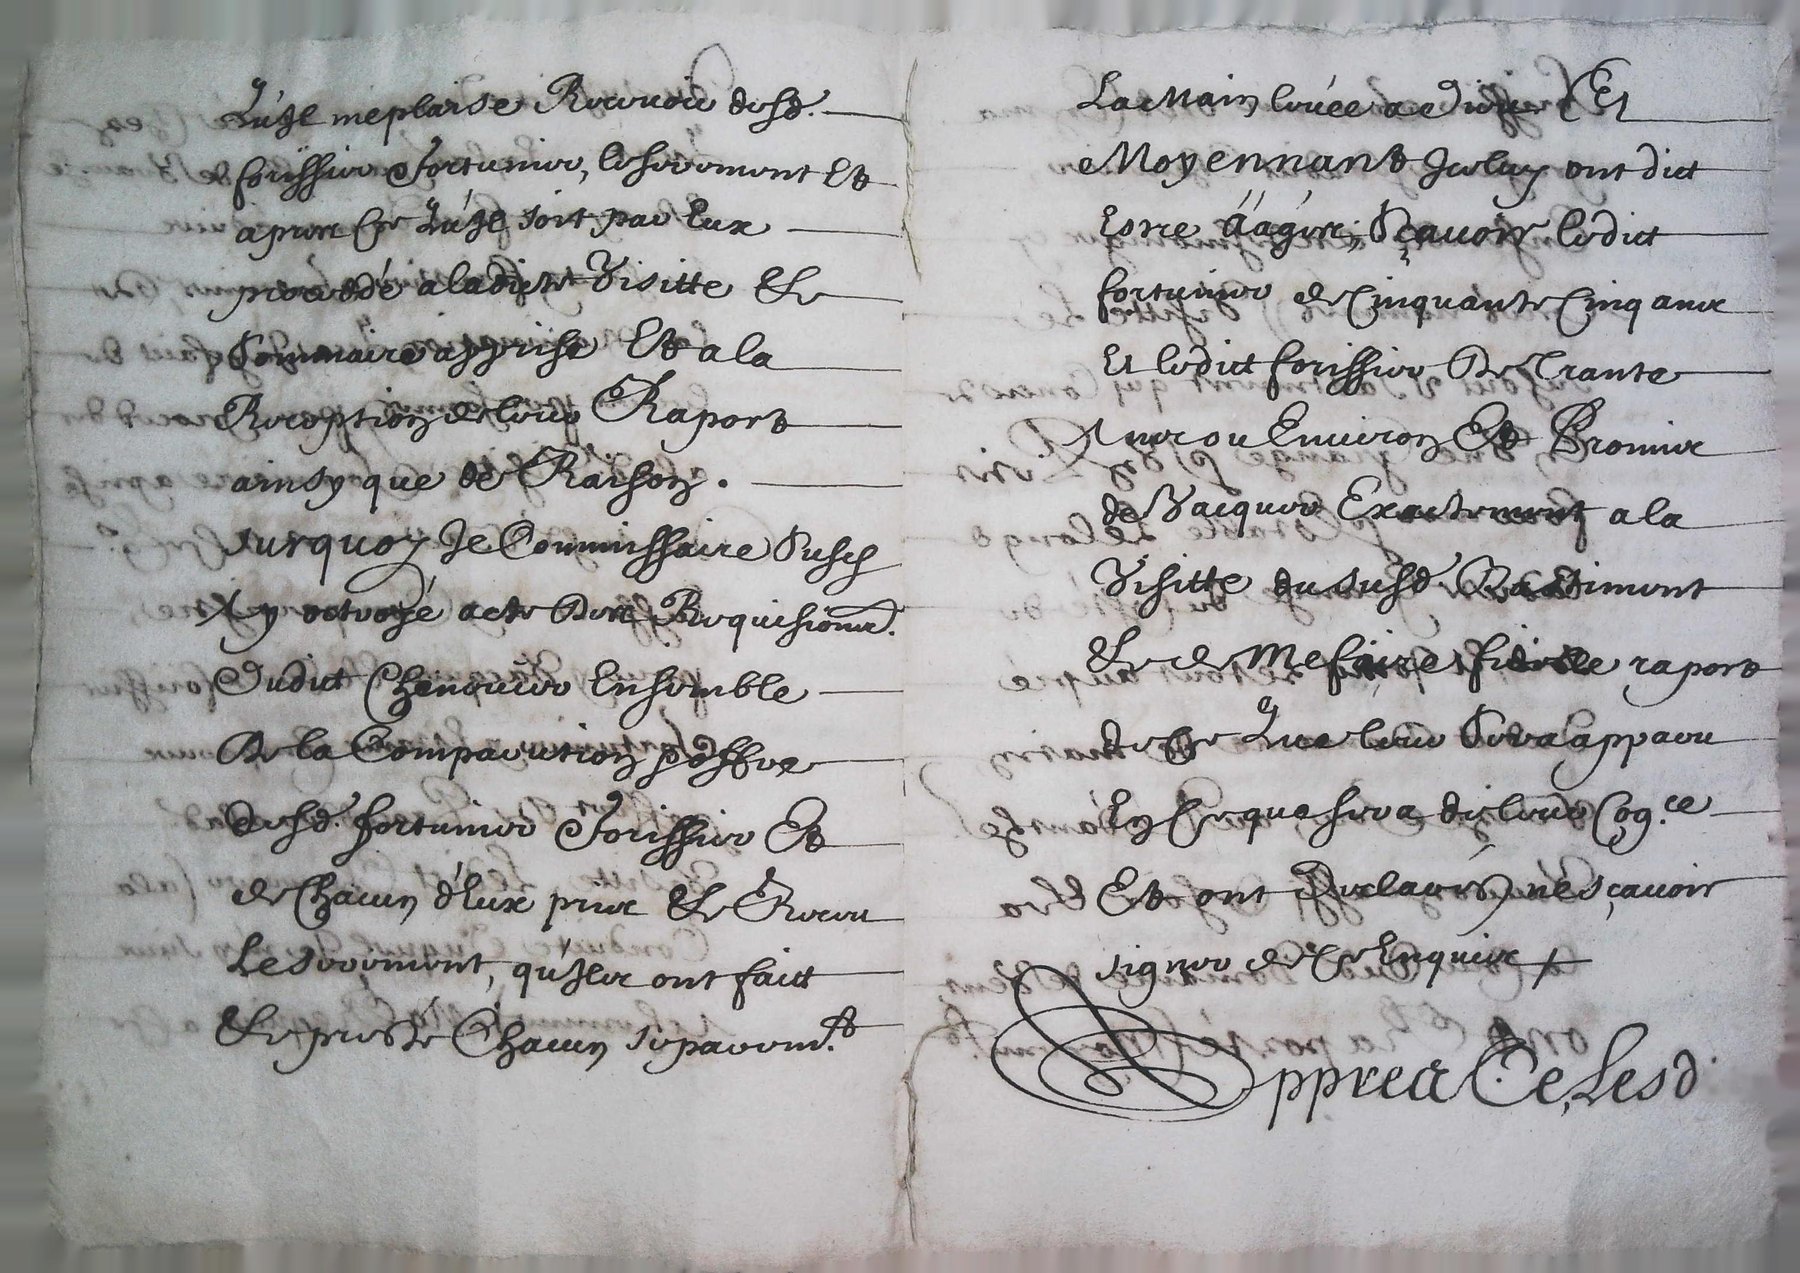 Qu'Jl me plaise Recevoir desd.
forissier Fortunier, le serement Et
apres Ce Qu'Jl soit par Eux
proceddé a ladicte Visitte Et
Sommaire apprise Et a la
Reception de leur Raport
ainsy que de Raison.
Surquoy Je Commissaire Susd
Ay octroyé acte Des Requisions.
Dudict Chenouier Ensemble
De la Comparution p
desd. fortunier Forissier Et
de Chacun d'Eux pris Et Receu
Le serement, qu'Jls ont faict
Et presté Chacun separemt.
La Main levée a dieu Et
Moyennant Jceluy ont dict
Estre aagés, Sçavoir ledict
fortunier de Cinquante Cinq ans
Et ledict forissier De Trante
Ans ou Environ Et Promis
de Vacquer Exactement a la
Visitte du susd Bastiment
Et de Me faire fidelle raport
de Ce Que leur Sera apparu
En Ce que sera de leur Cog.ce
Et ont Declaré ne sçavoir
signer de Ce Enquis
Appres Ce, Lesd